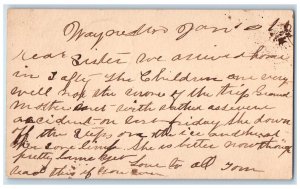 Waynesboro Jan
Dear Sister we arrived home
in safty the Children are very
well not the worse of the trip Grand
Mother met with rather a severe
accident on friday She
off the Steps on the ice and hurt
her She is better now though
pretty Lame yet Love to all your
read this if you can